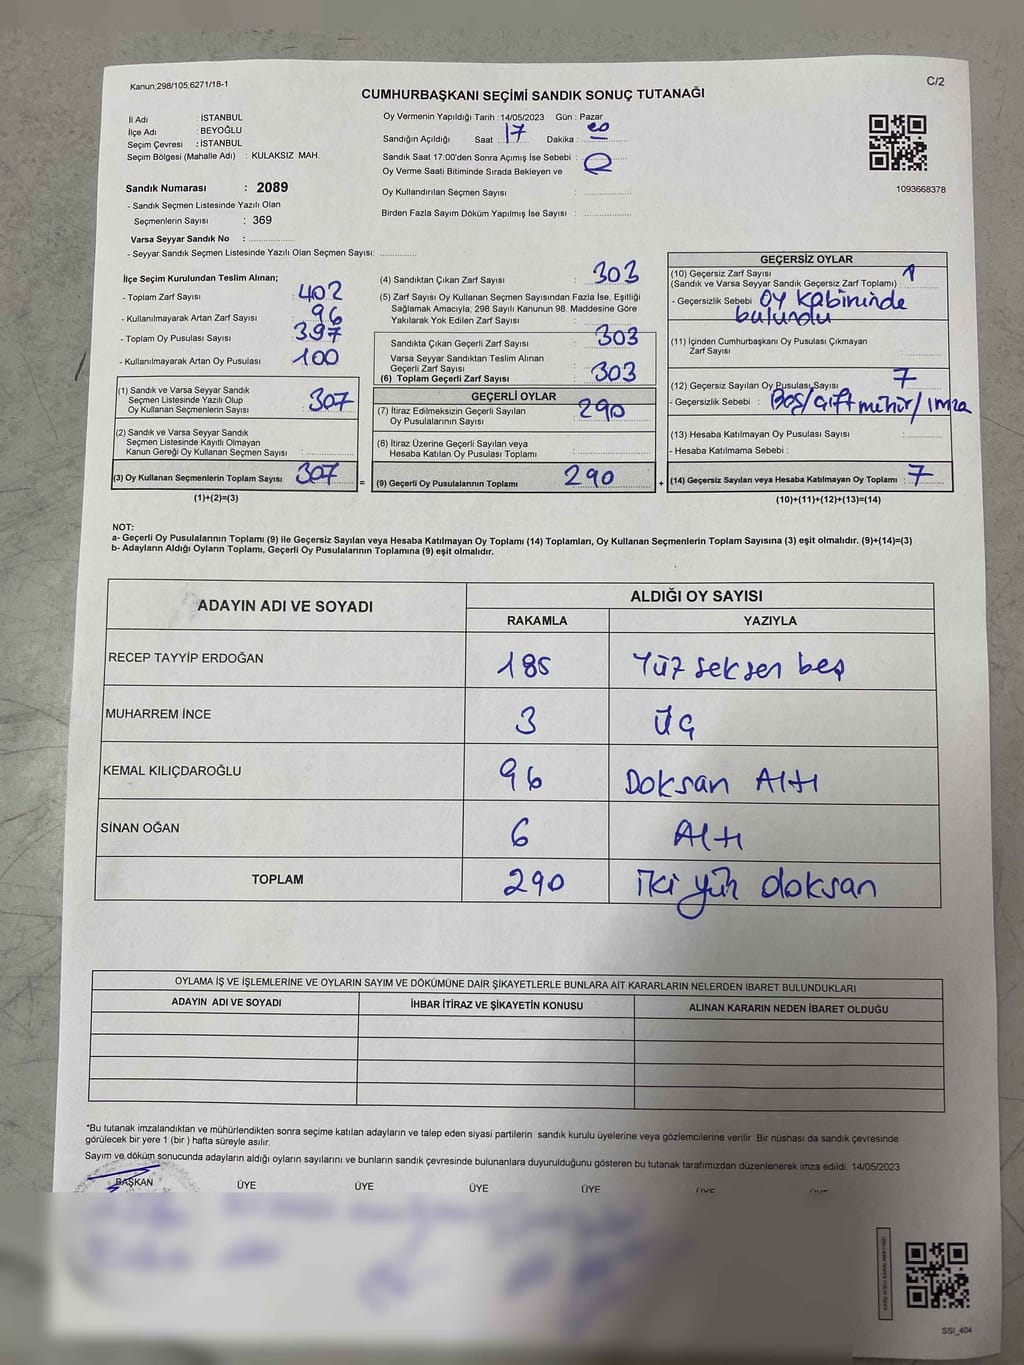 Kanun;298/105,6271/18-1
C/2
CUMHURBAŞKANI SEÇİMİ SANDIK SONUÇ TUTANAĞI
İl Adı : İSTANBUL
İlçe Adı : BEYOĞLU
Seçim Çevresi : İSTANBUL
Seçim Bölgesi (Mahalle Adı) : KULAKSIZ MAH.
Sandık Numarası : 2089
- Sandık Seçmen Listesinde Yazılı Olan
Seçmenlerin Sayısı : 369
Varsa Seyyar Sandık No : ...............
- Seyyar Sandık Seçmen Listesinde Yazılı Olan Seçmen Sayısı: ............
Oy Vermenin Yapıldığı Tarih : 14/05/2023 Gün : Pazar
Sandığın Açıldığı Saat : 17 Dakika : 00
Sandık Saat 17:00'den Sonra Açımış İse Sebebi :
Oy Verme Saati Bitiminde Sırada Bekleyen ve
Oy Kullandırılan Seçmen Sayısı : ...............
Birden Fazla Sayım Döküm Yapılmış İse Sayısı : ...............
1093668378
İlçe Seçim Kurulundan Teslim Alınan;
- Toplam Zarf Sayısı : 402
- Kullanılmayarak Artan Zarf Sayısı : 96
- Toplam Oy Pusulası Sayısı : 397
- Kullanılmayarak Artan Oy Pusulası : 100
(1) Sandık ve Varsa Seyyar Sandık
Seçmen Listesinde Yazılı Olup
Oy Kullanan Seçmenlerin Sayısı : 307
(2) Sandık ve Varsa Seyyar Sandık
Seçmen Listesinde Kayıtlı Olmayan
Kanun Gereği Oy Kullanan Seçmen Sayısı : ...............
(3) Oy Kullanan Seçmenlerin Toplam Sayısı : 307 =
(1)+(2)=(3)
(4) Sandıktan Çıkan Zarf Sayısı : 303
(5) Zarf Sayısı Oy Kullanan Seçmen Sayısından Fazla İse, Eşitliği
Sağlamak Amacıyla, 298 Sayılı Kanunun 98. Maddesine Göre
Yakılarak Yok Edilen Zarf Sayısı : ...............
Sandıkta Çıkan Geçerli Zarf Sayısı : 303
Varsa Seyyar Sandıktan Teslim Alınan
Geçerli Zarf Sayısı : ...............
(6) Toplam Geçerli Zarf Sayısı : 303
GEÇERLİ OYLAR
(7) İtiraz Edilmeksizin Geçerli Sayılan
Oy Pusulalarının Sayısı : 290
(8) İtiraz Üzerine Geçerli Sayılan veya
Hesaba Katılan Oy Pusulası Toplamı : ...............
(9) Geçerli Oy Pusulalarının Toplamı : 290 +
GEÇERSİZ OYLAR
(10) Geçersiz Zarf Sayısı
(Sandık ve Varsa Seyyar Sandık Geçersiz Zarf Toplamı) : 1
- Geçersizlik Sebebi : Oy kabininde
bulundu
(11) İçinden Cumhurbaşkanı Oy Pusulası Çıkmayan
Zarf Sayısı : ...............
(12) Geçersiz Sayılan Oy Pusulası Sayısı : 7
- Geçersizlik Sebebi : Boş/çift mühür/imza
(13) Hesaba Katılmayan Oy Pusulası Sayısı : ...............
- Hesaba Katılmama Sebebi :
(14) Geçersiz Sayılan veya Hesaba Katılmayan Oy Toplamı : 7
(10)+(11)+(12)+(13)=(14)
NOT:
a- Geçerli Oy Pusulalarının Toplamı (9) ile Geçersiz Sayılan veya Hesaba Katılmayan Oy Toplamı (14) Toplamları, Oy Kullanan Seçmenlerin Toplam Sayısına (3) eşit olmalıdır. (9)+(14)=(3)
b- Adayların Aldığı Oyların Toplamı, Geçerli Oy Pusulalarının Toplamına (9) eşit olmalıdır.
ADAYIN ADI VE SOYADI ALDIĞI OY SAYISI
RAKAMLA YAZIYLA
RECEP TAYYİP ERDOĞAN 185 Yüz seksen beş
MUHARREM İNCE 3 Üç
KEMAL KILIÇDAROĞLU 96 Doksan Altı
SİNAN OĞAN 6 Altı
TOPLAM 290 İki yüz doksan
OYLAMA İŞ VE İŞLEMLERİNE VE OYLARIN SAYIM VE DÖKÜMÜNE DAİR ŞİKAYETLERLE BUNLARA AİT KARARLARIN NELERDEN İBARET BULUNDUKLARI
ADAYIN ADI VE SOYADI İHBAR İTİRAZ VE ŞİKAYETİN KONUSU ALINAN KARARIN NEDEN İBARET OLDUĞU
*Bu tutanak imzalandıktan ve mühürlendikten sonra seçime katılan adayların ve talep eden siyasi partilerin sandık kurulu üyelerine veya gözlemcilerine verilir. Bir nüshası da sandık çevresinde
görülecek bir yere 1 (bir ) hafta süreyle asılır.
Sayım ve döküm sonucunda adayların aldığı oyların sayılarını ve bunların sandık çevresinde bulunanlara duyurulduğunu gösteren bu tutanak tarafımızdan düzenlenerek imza edildi. 14/05/2023
BAŞKAN ÜYE ÜYE ÜYE ÜYE ÜYE ÜYE
SSI_404